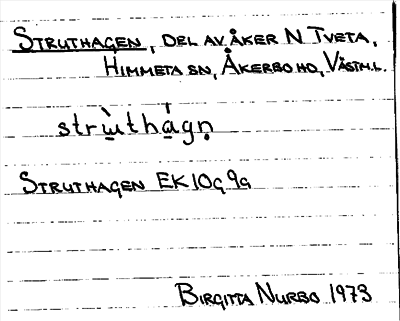 STRUTHAGEN, DEL AV ÅKER N TVETA,
HIMMETA SN, ÅKERBO HD, VÄSTM.L.
strẁ̱thá̱gṇ
STRUTHAGEN EK 10G 9G
BIRGITTA NURBO 1973